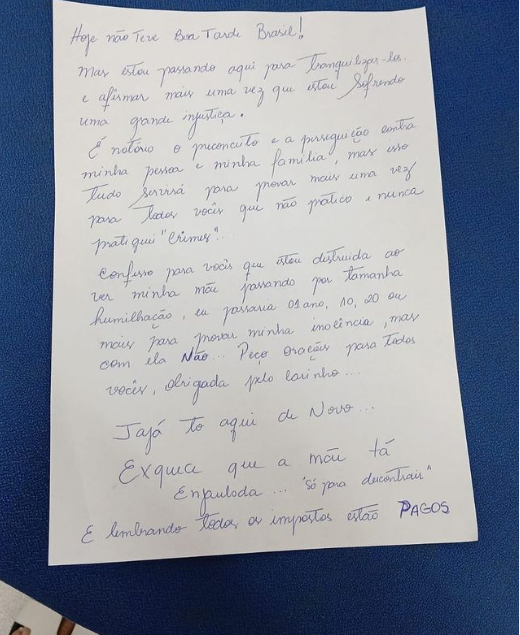 Hoje não Teve Boa Tarde Brasil!
Mas estou passando aqui para tranquilizar-los.
e afirmar mais uma vez que estou Sofrendo
uma grande injustiça.
É notório o preconceito e a perseguição contra
minha pessoa e minha família, mas isso
tudo servirá para provar mais uma vez
para todos vocês que não pratico e nunca
pratiquei "Crimes"...
Confesso para vocês que estou destruida ao
ver minha mãe passando por tamanha
humilhação, eu passaria 01 ano, 10, 20 ou
mais para provar minha inocência, mas
com ela Não... Peço orações para todos
vocês, obrigada pelo carinho...
Jajá to aqui de Novo...
Esquece que a mãe tá
Enjaulada... "só para descontrair"
E lembrando todos os impostos estão PAGOS